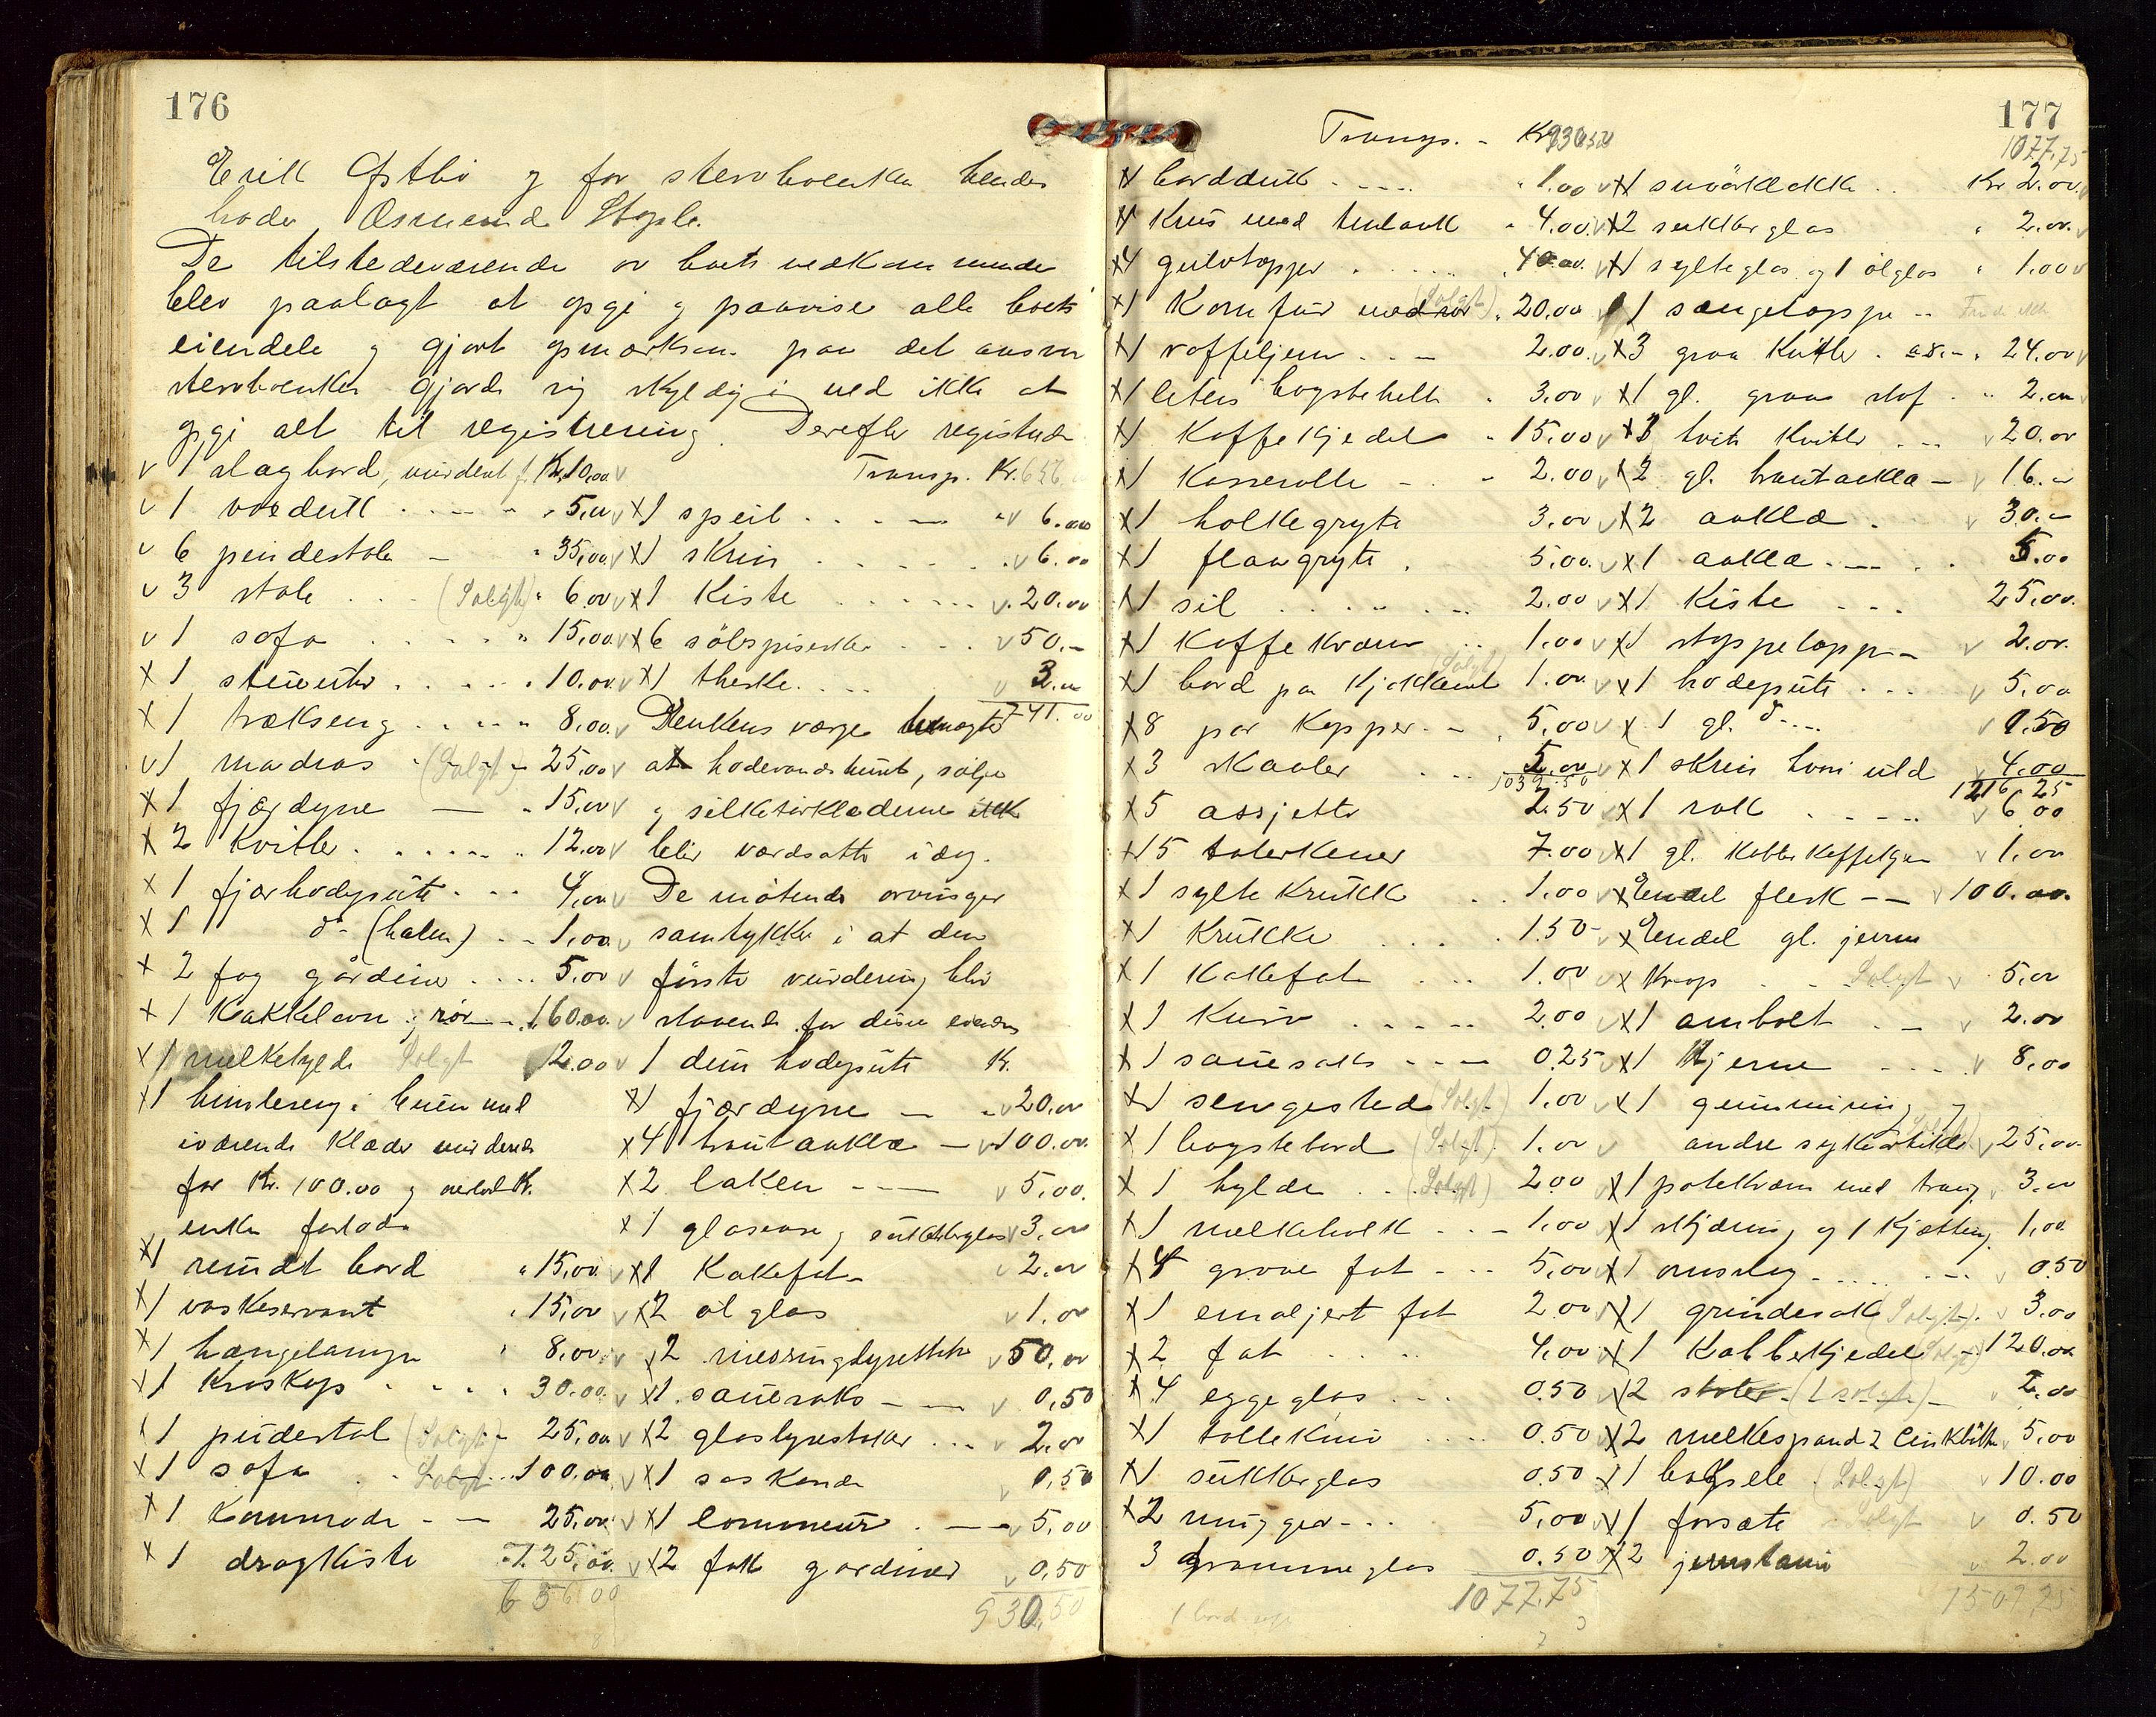 176
Erik Østbø og for stervboenken hendes
broder Osmund Stople.
De tilstedeværende av boets vedkommende
blev paalagt at opgi og paavise alle boets
eiendele og gjort opmerksom paa det ansvar
stervboenken gjorde sig skyldig i ved ikke at
opgi alt til registrering. Derefter registrerte
v 1 slagbord, vurdert f. Kr. 10.00 v
v 1 voxduk . . . . 5,00 v
v 6 pindestole - " 35,00 v
v 3 stole . . (Solgt) " 6.00 v
v 1 sofa . . . . " 15,00 v
x 1 stueuhr . . . . . 10.00 v
x 1 trækseng . . . . " 8,00 v
v 1 madras (Solgt) - 25,00 v
x 1 fjærdyne — " 15,00 v
x 2 kvitler . . . . . . " 12,00 v
x 1 fjærhodepute . . . 4,00 v
x 1 do (halm) . . 1,00 v
x 2 fag gardiner . . . . 5,00 v
x 1 Kakkelovn : rør . . 160.00 v
x 1 melkehylde Solgt 12.00 v
x 1 himlseng i buen med
iværende klæder vurderes
for Kr. 100.00 og
enken
x 1 rundt bord " 15,00 v
x 1 vaskeservant " 15,00 v
x 1 hængelampe " 8,00 v
x 1 Kroskap . . . . 30.00 v
x 1 pudestol (Solgt) - 25,00 v
x 1 sofa . . Solgt . . 100,00 v
x 1 Kommode - — 25,00 v
x 1 dragkiste 125,00 v
656 00
Transp. Kr. 656,
x 1 speil . . . . — " v 6.00
x 1 skrin . . . . . . v 6.00
x 1 Kiste . . . . . . v 20.00
x 6 sölvspiseskeer . . . v 50.-
x 1 theske . . . . v 3.00
741.00
Enkens værge
at hodevandshus, sölje
og silketörklæderne ikke
blir værdsatte idag.
De mötende arvinger
samtykker i at den
förste vurdering blir
staaende for disse eiendele
1 dun hodepute Kr.
x 1 fjærdyne — - v 20.00
x 4 brutaaklæ — v 100.00
x 2 laken — — v 5,00
x 1 glasvase og sukkerglas v 3,00
x 1 Kakefat - v 2.00
x 2 ølglas v 1.00
x 2 messinglysestaker v 50,00
x 1 sauesaks - — v 0,50
x 2 glaslysestaker . . . v 2.00
x 1 saskande v 0,50
x 1 lommeur . — v 5,00
x 2 fak gardiner v 0,50
930,50
177
Transp. - Kr 930.50
x 1 bordduk . - - - . . " 1.00 v
x 1 Krus med tinlaak " 4.00 v
x 4 gulvtepper . . . . . " 40.00 v
x 1 Komfur med rör (Solgt) " 20.00
x 1 vaffeljern . . - 2.00 v
x 1 liters bogstbelte " 3.00 v
x 1 Kaffekjedel " 15,00 v
x 1 Kasserolle - . - 2.00 v
x 1 holkegryte 3.00 v
x 1 flaagryte . 5.00 v
x 1 sil . . . . . . . . 2.00 v
x 1 Kaffekværn . . 1.00 v
x 1 bord paa Kjøkkenet (Solgt) 1.00 v
x 8 par Kopper . - . 5.00 v
x 3 skaaler . . . 5.00 v
1039.50
x 5 assjetter 2.50
x 15 talerkener 7.00 v
x 1 sylte krukke . . 1.00 v
x 1 Krukke . . . . . 1.50 v
x 1 Kakefat . . . 1.00 v
x 1 Kurv . . . . . 2.00 v
x 1 sauesaks - - — 0.25 v
x 1 sengested (Solgt) 1.00 v
x 1 bagstebord (Solgt) 1.00 v
x 1 hylde . . (Solgt) 2.00
x 1 melkeholk . . - 1.00
x 4 grove fat - . . 5.00 v
x 1 emaljert fat 2.00
x 2 fat . . . . 4.00
x 4 eggeglas . . . 0.50
x 1 tollekniv . . . . 0.50
x 1 sukkerglas 0.50
x 2 mugger - . . 5,00 v
3 drammeglas 0.50
1077.75
1077.75
x 1 suörklokke . . Kr 2.00 v
x 2 sukkerglas " 2.00 v
x 1 sylteglas og 1 ölglas " 1.00 v
1 sængeteppe . .
x 3 graa Kvitler . a 8.- " 24.00 v
x 1 gl. graa stof . " 2.00 v
x 3 hvite Kvitler . . . v 20.00
x 2 gl. brutaaklæ - v 16.-
x 2 aaklæ . v 30.-
x 1 aaklæ . — . . 5.00
x 1 Kiste . . . 25,00
x 1 stoppeteppe - v 2.00
x 1 hodepute . . . v 5,00
x 1 gl. do . . v 1.50
x 1 skrin hvori uld v 4.00
1216 25
x 1 rok . . . . . v 6 00
x 1 gl. kobberkaffekjedel v 1.00
x Endel flesk - — v 100.00
x Endel gl. jern
x Krap . . Solgt v 5,00
x 1 ambolt . - v 2.00
x 1 Kjerne . . . . v 8,00
x 1 gummiring og
andre sykeartikler (Solgt) v 25,00
x 1 potetkværn med traug v 3.00
x 1 skjæring og 1 Kjætting 1,00
x 1 . . . . v 0.50
x 1 grindesak (Solgt) . v 3.00
x 1 Kobberkjedel Solgt - 120.00
x 2 stoler (1 solgt) - v 2.00
x 2 melkespand 2 sinkbötter v 5.00
x 1 baksele (Solgt) v 10.00
x 1 forsæte - Solgt v 0.50
x 2 jernstaur v 2.00
1509 25